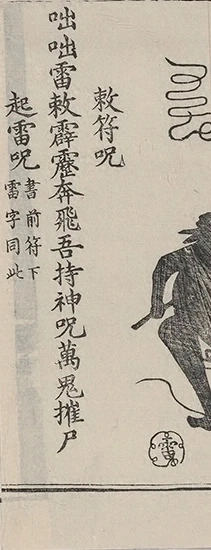 敕符呪
咄咄雷敕霹靂奔飛吾持神呪萬鬼摧尸
起雷呪書前符下
雷字同此